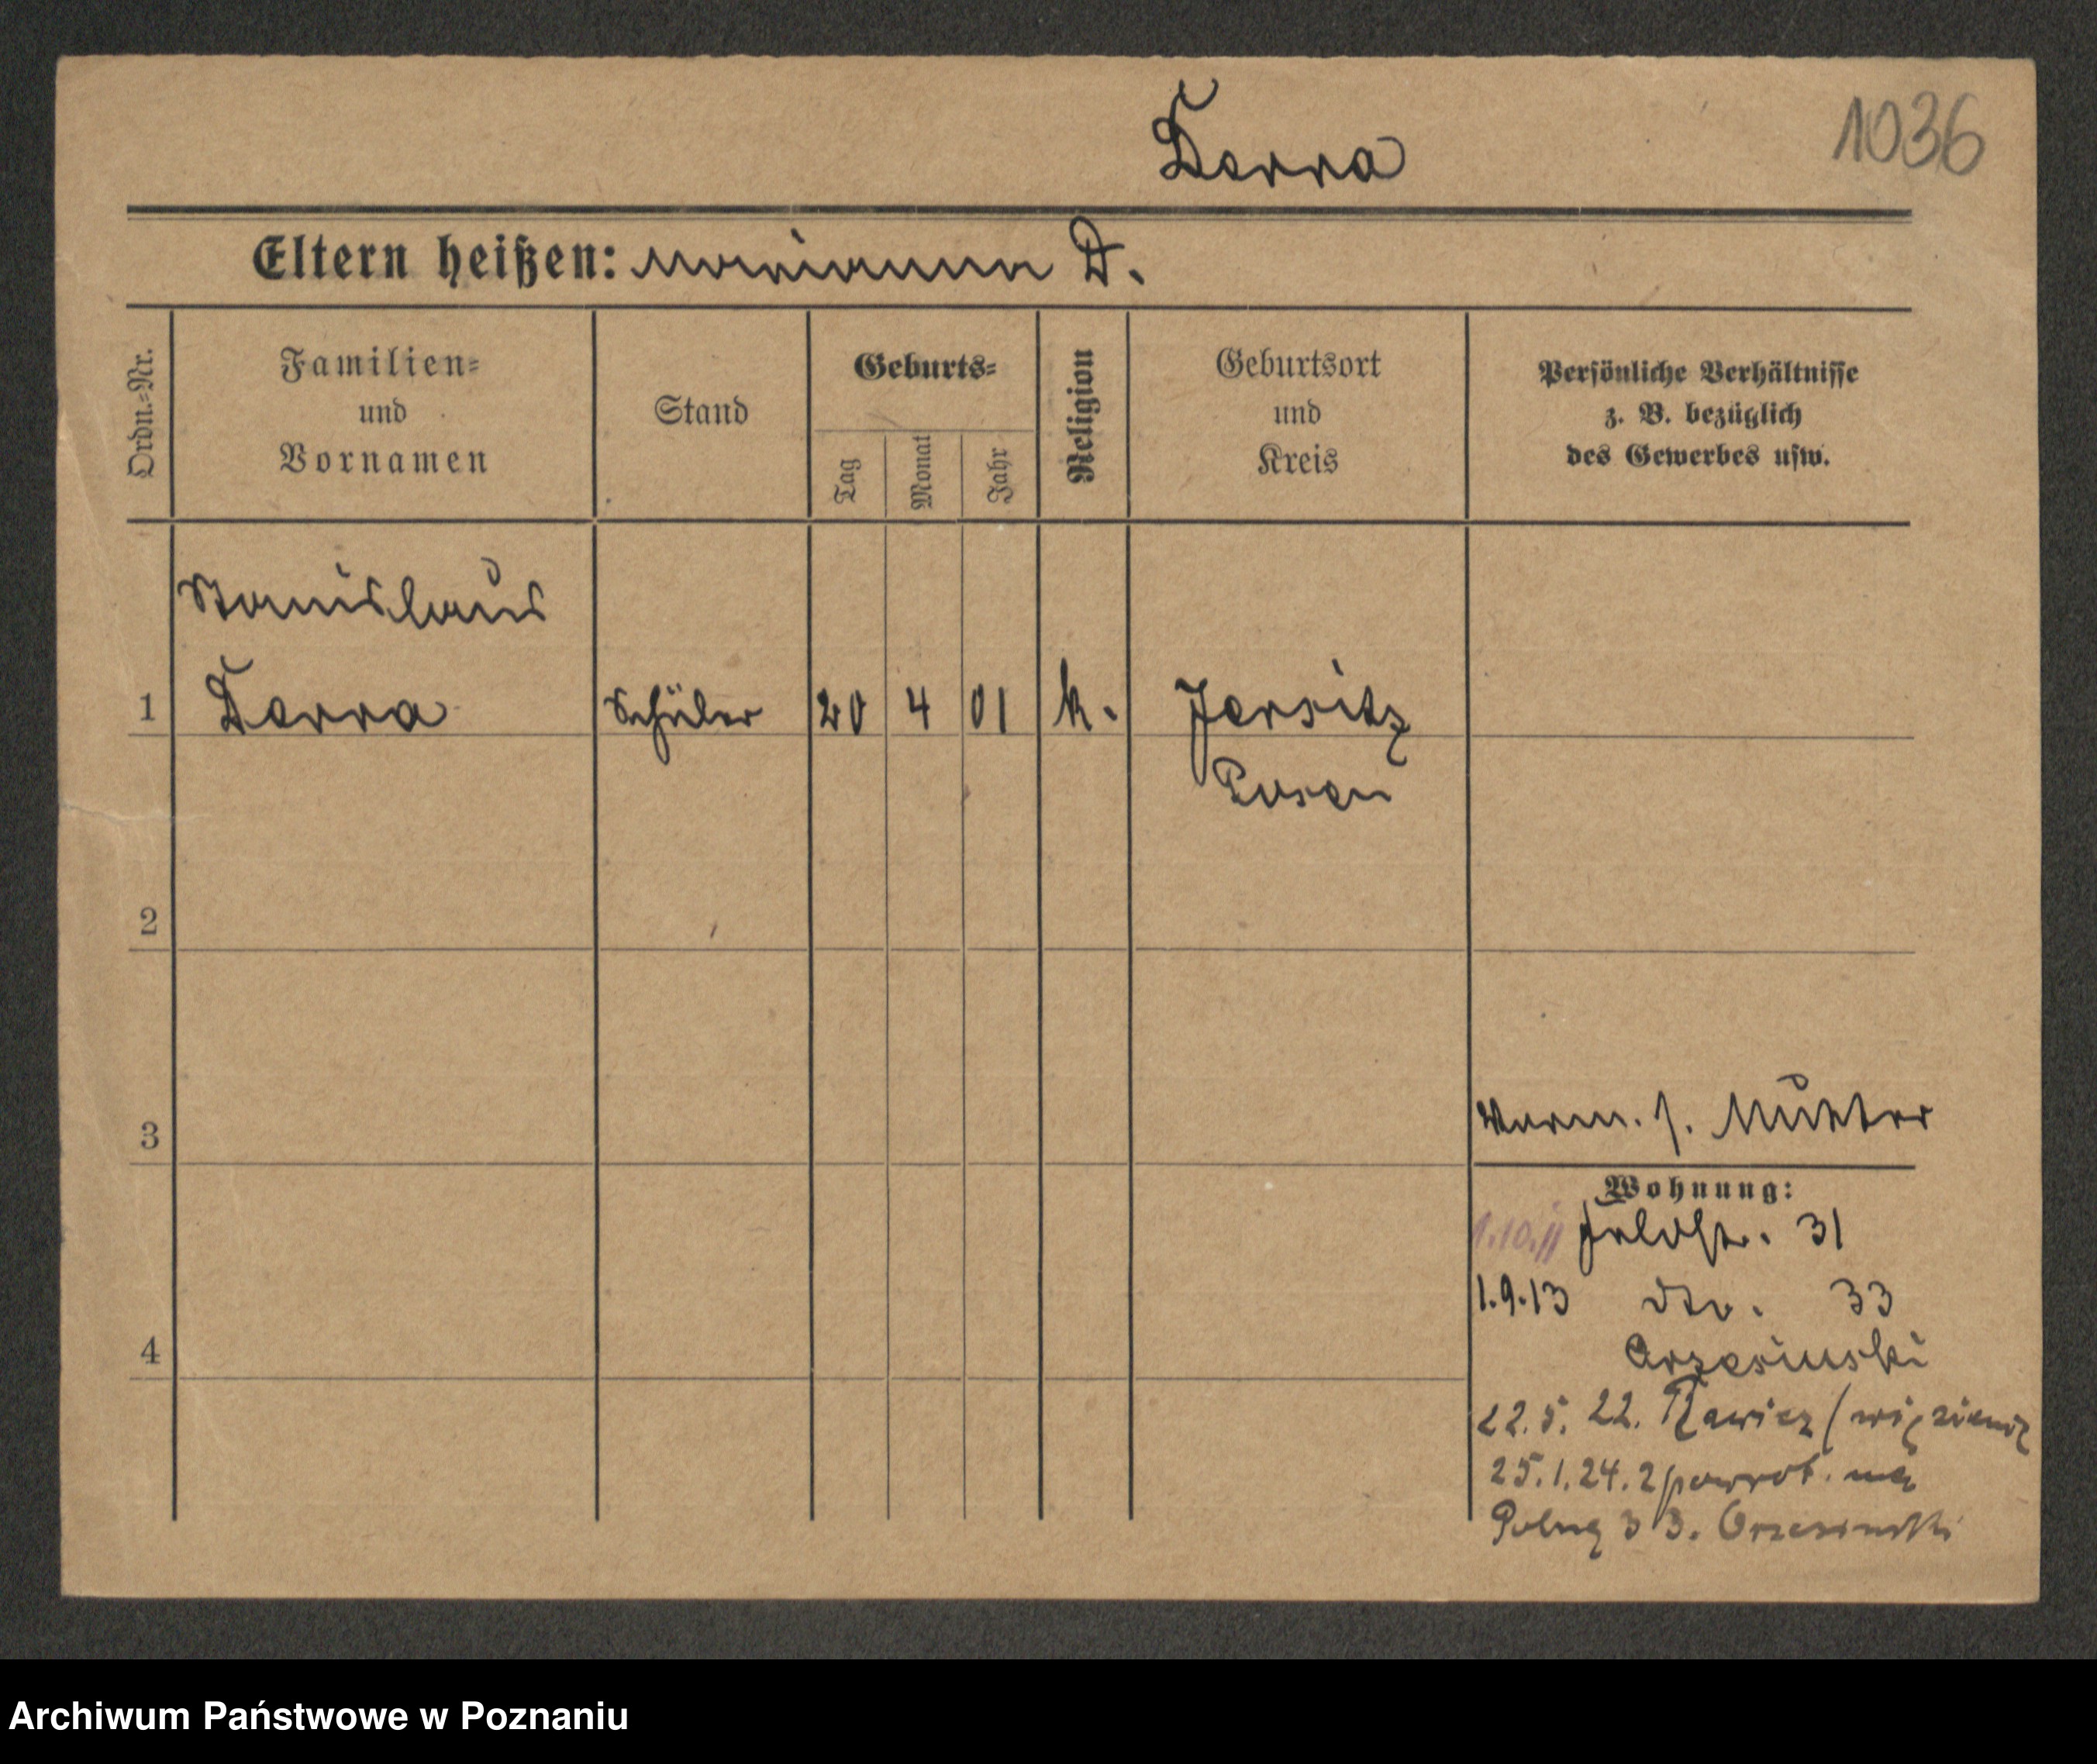 Derra
1036
Eltern heißen: Marianna D.
Ordn.-Nr.
Familien-
und
Vornamen
Stand
Geburts-
Tag
Monat
Jahr
Religion
Geburtsort
und
Kreis
Persönliche Verhältnisse
z. B. bezüglich
des Gewerbes usw.
Stanislaus
1 Derra Schüler 20 4 01 k. Jersitz
Posen
2
3
Vorm. s. Mutter
Wohnung:
1.10.11 Feldstr. 31
1.9.13 dto. 33
4
Orzesinski
22.5.22. Rawicz (więzienie
25.1.24. z powrot. na
Polną 33. Orzesinski
Archiwum Państwowe w Poznaniu